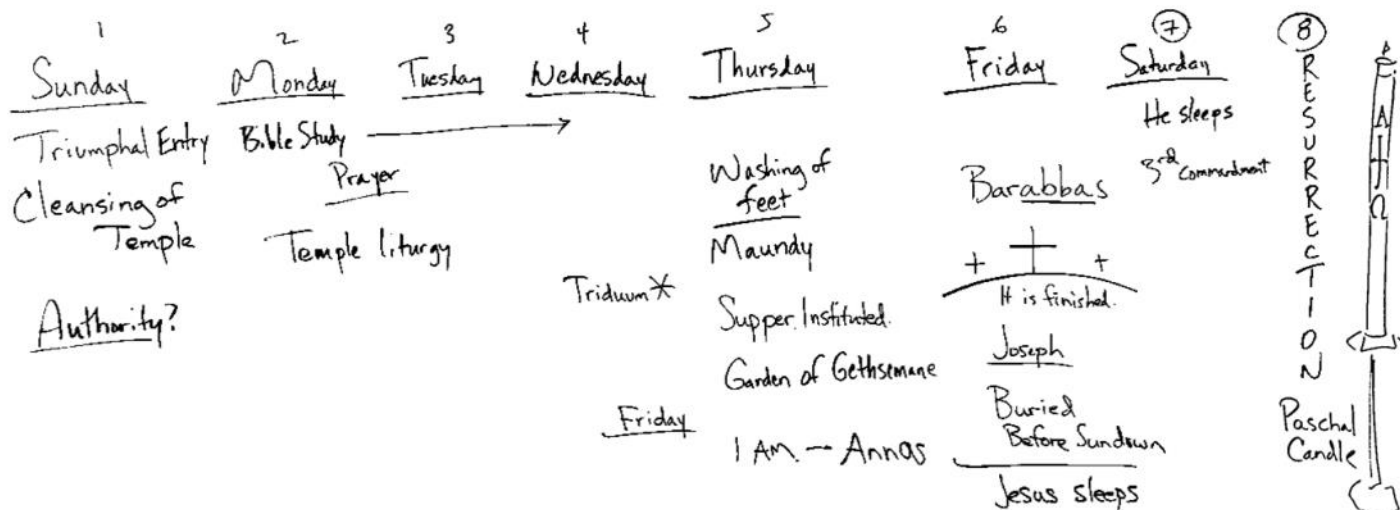 1
Sunday
Triumphal Entry
Cleansing of
Temple
Authority?
2
Monday
Bible Study
Prayer
Temple liturgy
3
Tuesday
4
Wednesday
Triduum *
Friday
5
Thursday
Washing of
feet
Maundy
Supper Instituted.
Garden of Gethsemane
I AM. — Annas
6
Friday
Barabbas
It is finished.
Joseph
Buried
Before Sundown
Jesus sleeps
7
Saturday
He sleeps
3rd commandment
8
RESURRECTION
Paschal
Candle
Α
Ω